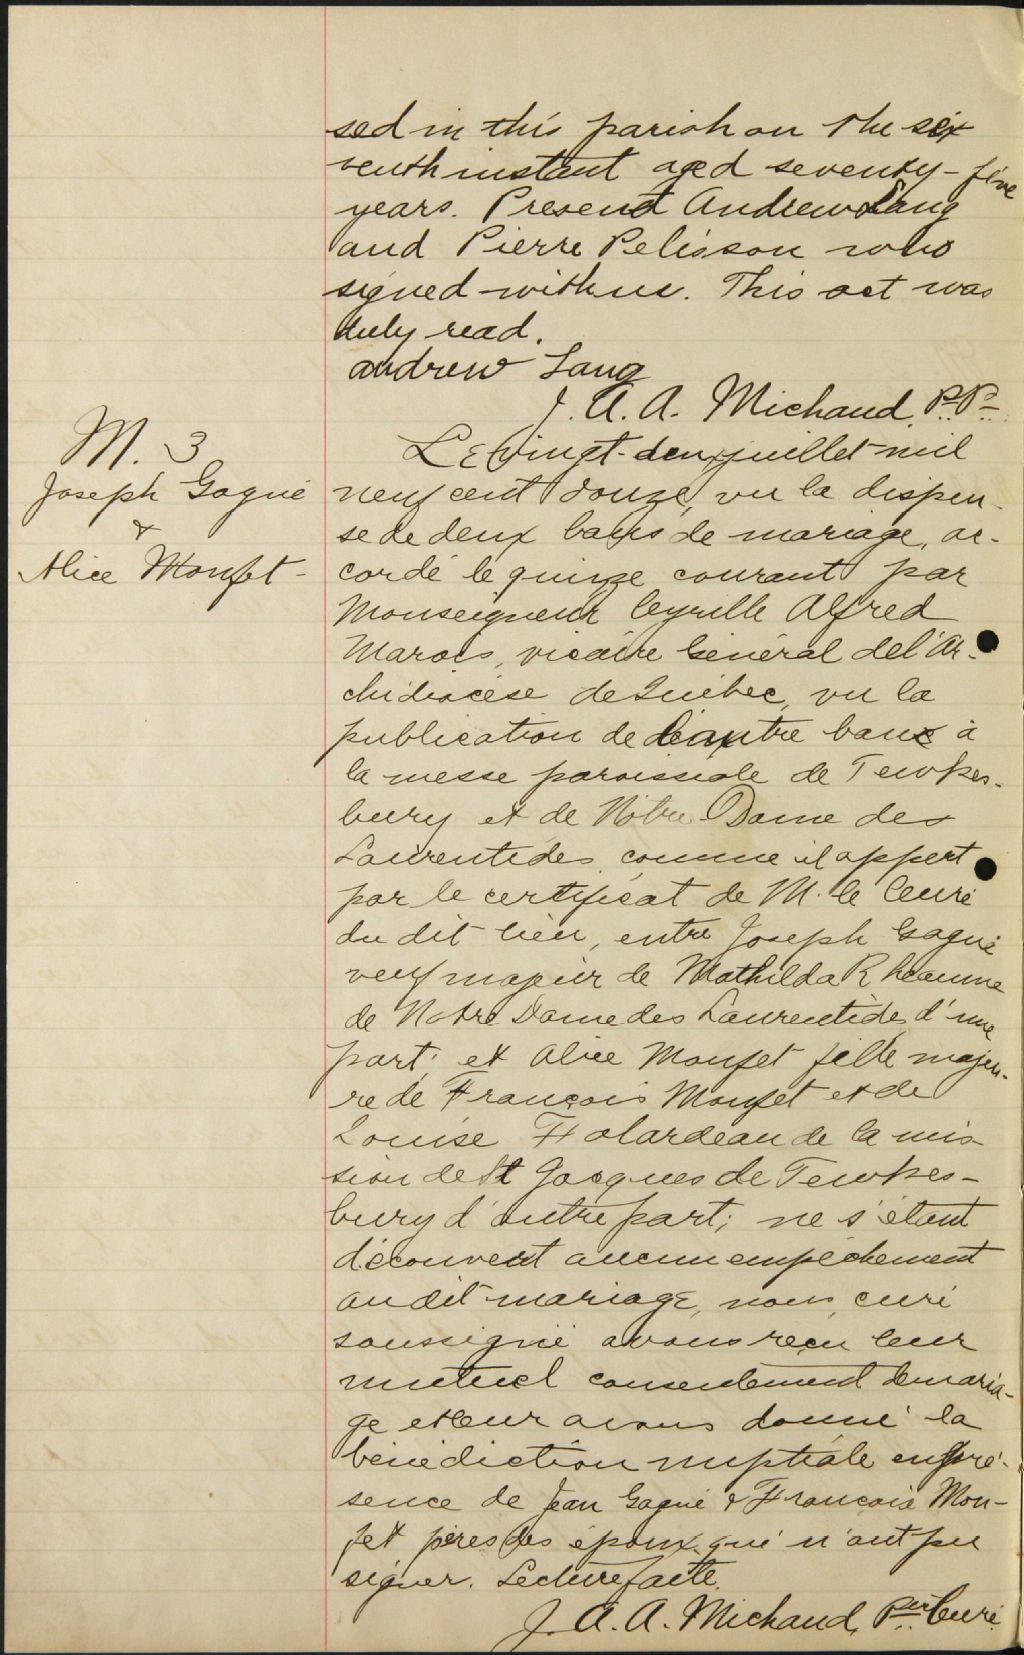 sed in this parish on the six
venth instant aged seventy-five
years. Present Andrew Lang
and Pierre Pelisson who
signed with us. This act was
duly read.
Andrew Lang
J. A. A. Michaud, P.P.
M. 3
Joseph Gagné
&
Alice Monfet-
Le vingt-deux juillet mil
neuf cent douze, vu la dispen-
se de deux bans de mariage, ac-
cordé le quinze courant par
Monseigneur Cyrille Alfred
Marois, vicaire Général de l'Ar-
chidiocèse de Québec, vu la
publication de l'autre banc à
la messe paroissiale de Tewkes-
bury et de Notre-Dame des
Laurentides comme il appert
par le certificat de M. le Curé
du dit lieu, entre Joseph Gagné
veuf majeur de Mathilda Rheaume
de Notre Dame des Laurentides, d'une
part; et Alice Monfet fille majeu-
re de François Monfet et de
Louise Falardeau de la mis-
sion de St Jacques de Tewkes-
bury d'autre part; ne s'étant
découvert aucun empêchement
au dit mariage, nous, curé
soussigné avons reçu leur
mutuel consentement de maria-
ge et leur avons donné la
bénédiction nuptiale en pré-
sence de Jean Gagné & François Mon-
fet pères des époux qui n'ont pu
signer. Lecture faite.
J. A. A. Michaud, Ptre Curé